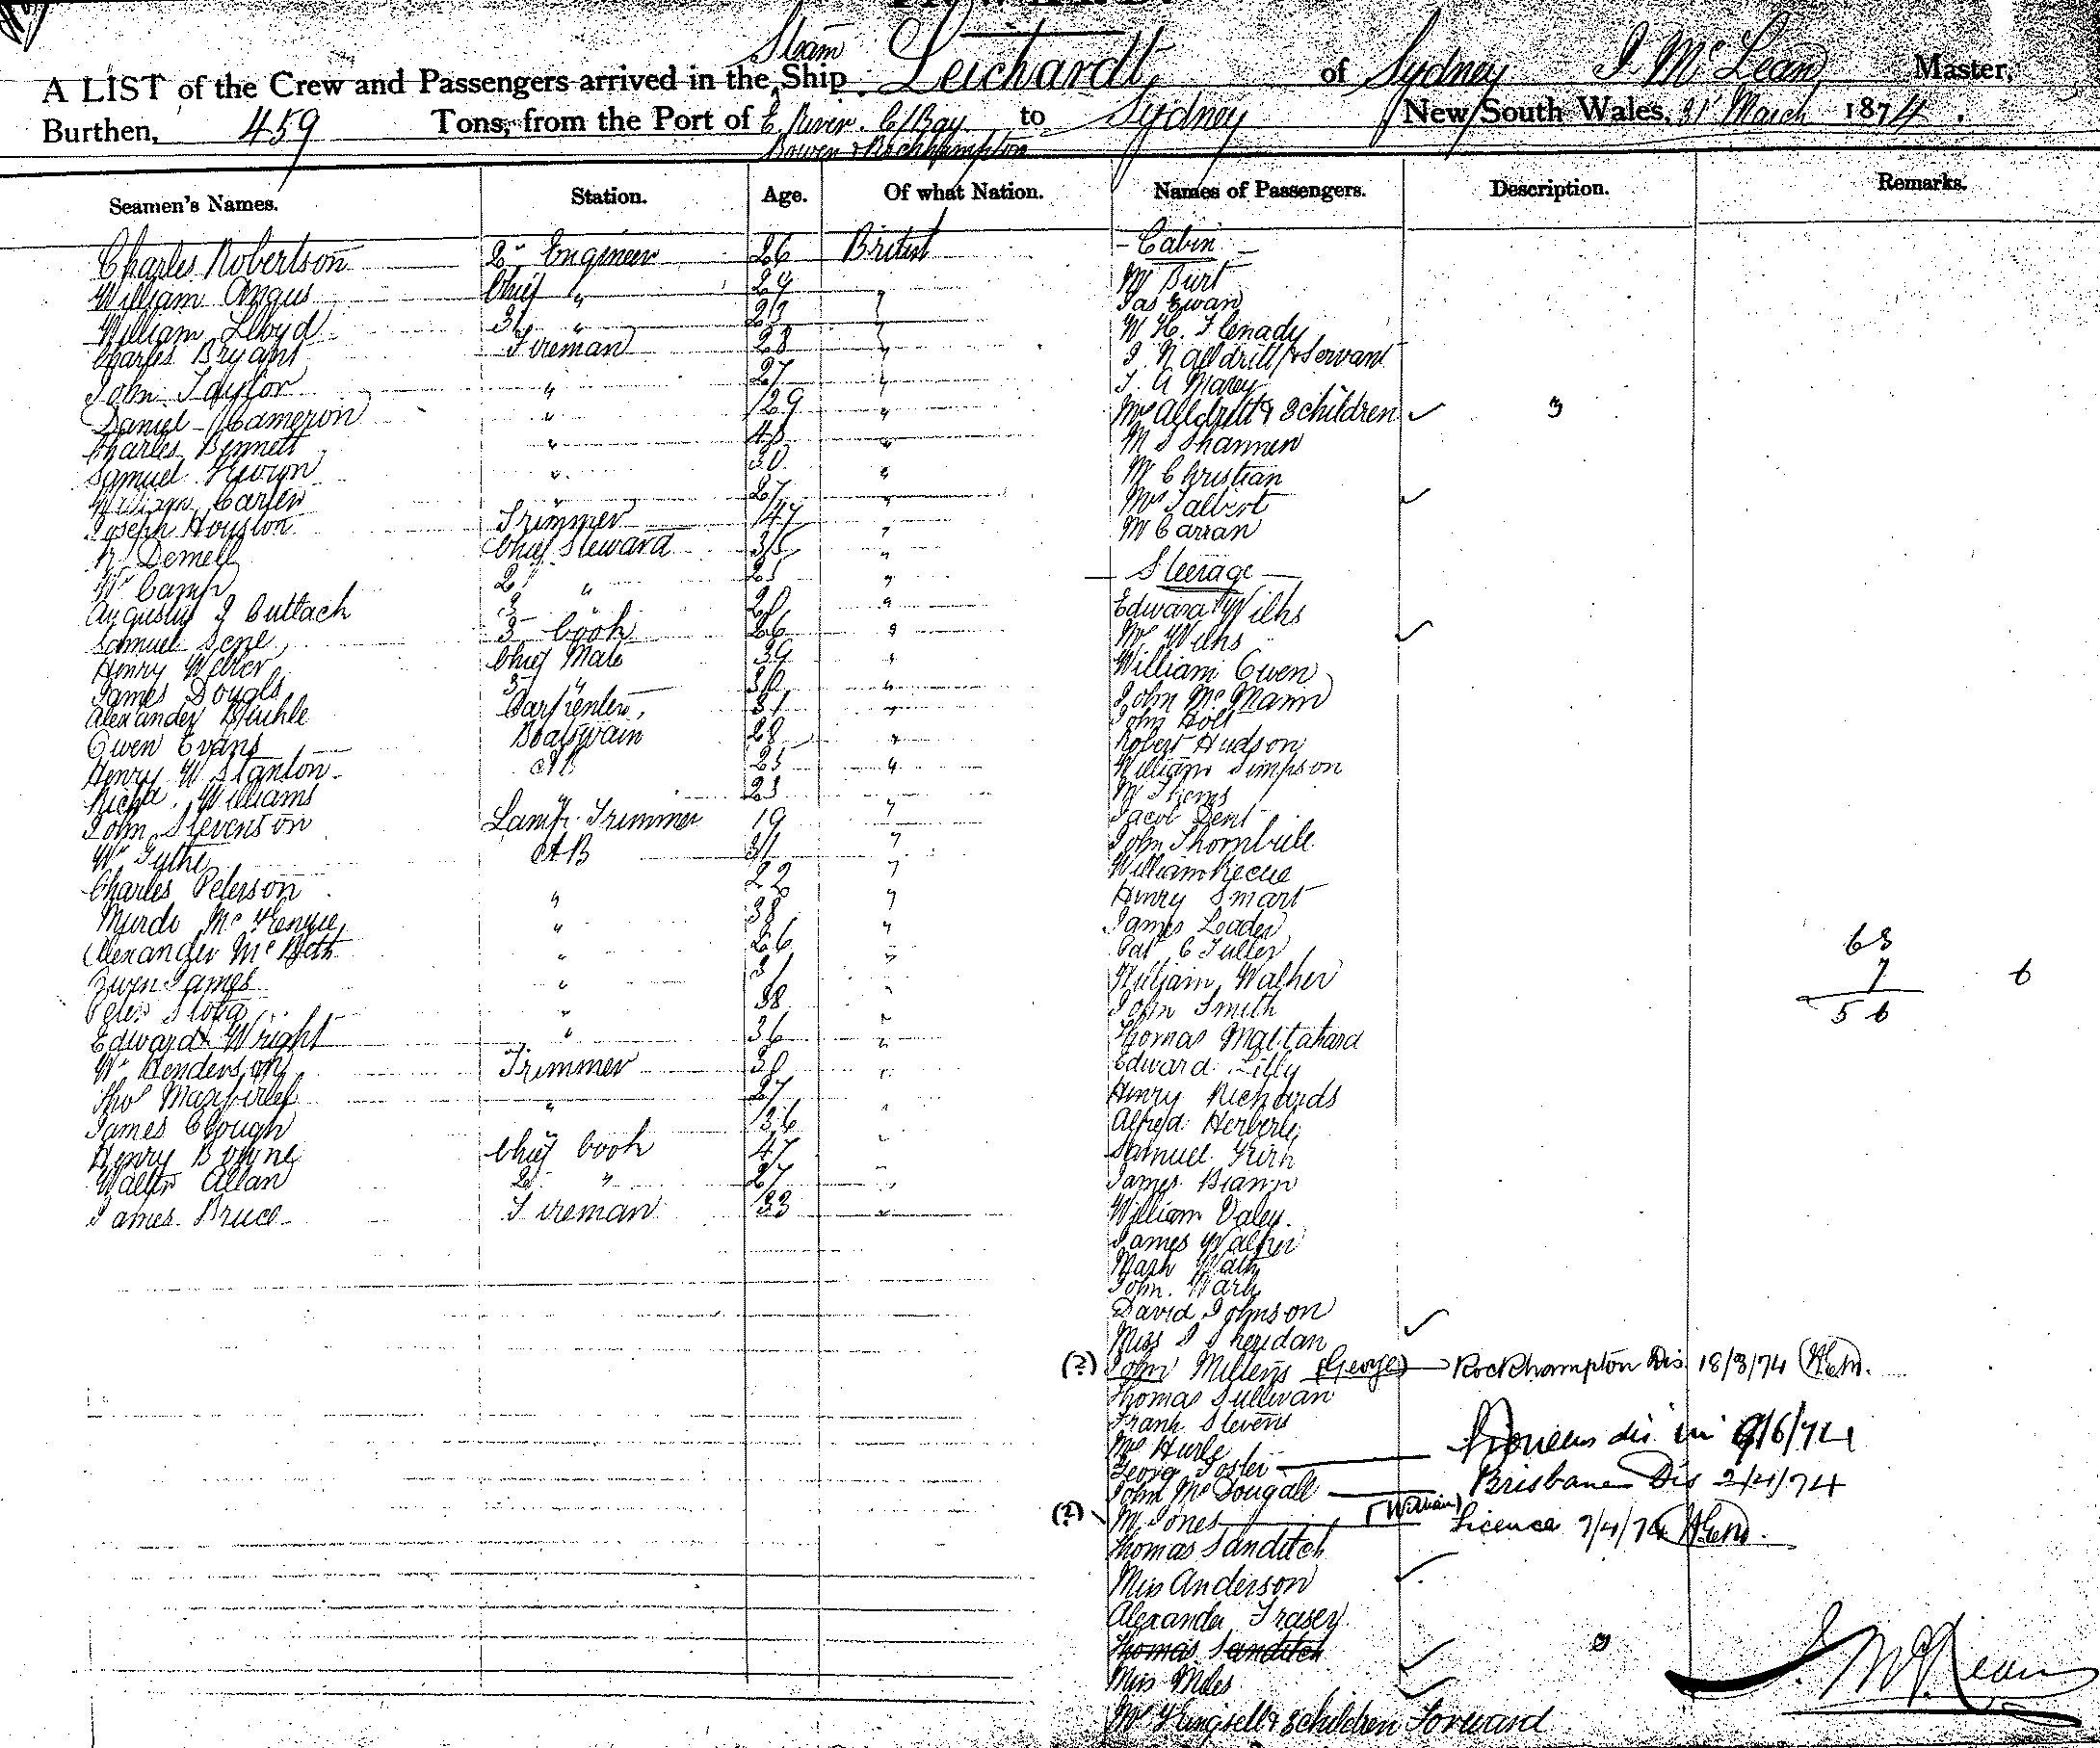 Steam
A LIST of the Crew and Passengers arrived in the Ship Leichardt, of Sydney J McLean Master,
Burthen, 459 Tons, from the Port of E. River. C/Bay to Sydney New South Wales, 31st March 1874.
Bowen & Rockhampton
Seamen's Names. Station. Age. Of what Nation. Names of Passengers. Description. Remarks.
Charles Robertson 2nd Engineer 26 British
William Angus Chief " 29 "
William Lloyd 3rd " 23 "
Charles Bryant Fireman 28 "
John Taylor " 27 "
Daniel Cameron " 29 "
Charles Bennett " 43 "
Samuel " 30 "
William Carter " 27 "
Joseph Houston Trimmer 47 "
Demell Chief Steward 35 "
Wm Camp 2nd " 25 "
Augustus J Cullach 3 " 20 "
Samuel 3rd Cook 26 "
Henry Weber Chief Mate 39 "
James Dougls " 30 "
Alexander Carpenter, 31 "
Owen Evans Boatswain 28 "
Henry W Stanton AB 25 "
Richd. Williams " 23
John Stevenson Lamp Trimmer 19 "
Wm AB 31 "
Charles Peterson " 22 "
Murdo " 38 "
Alexander McBeth " 26 "
Owen James " 31 "
Peter " 38 "
Edward Wright " 36 "
Wm Henderson Trimmer 30 "
Thos " 27 "
James Clough 36 "
Henry Bowne Chief Cook 47 "
Walter Allan 2nd " 27 "
James Bruce Fireman 33 "
- Cabin -
Mr Burt
Jas Ewan
W H. Flenady
J. N Alldritt & Servant
J. A
Mrs Alldritt & 3 children 3
M S Shannen
Mr Christian
Mrs Talbert
Mr Carran
- Steerage -
Edward Wilks
Mrs Wilks
William Owen
John McMann
John Holt
Robert Hudson
William Simpson
Mr
Jacob Dent
John Thornbill
William
Henry Smart
James Leader
Pat C Fuller
William Walker
John Smith
Thomas
Edward Lilly
Henry Richards
Alfred
Samuel
James
William Daley.
James Walker
Mark
John.
David Johnson
Miss J Sheridan
(?) John Millens (George) Rockhampton Dis. 18/3/74
Thomas Sullivan
Frank Stevens
Mr
George Foster dis in 9/6/74
John McDougall Brisbane Dis 2/4/74
(?) M Jones (William) Licence 7/4/74
Thomas Sanditch
Miss Anderson
Alexander Fraser
Thomas Sanditch 3
Miss Miles
& 3 children Forward
63
7 6
56
J. McLean